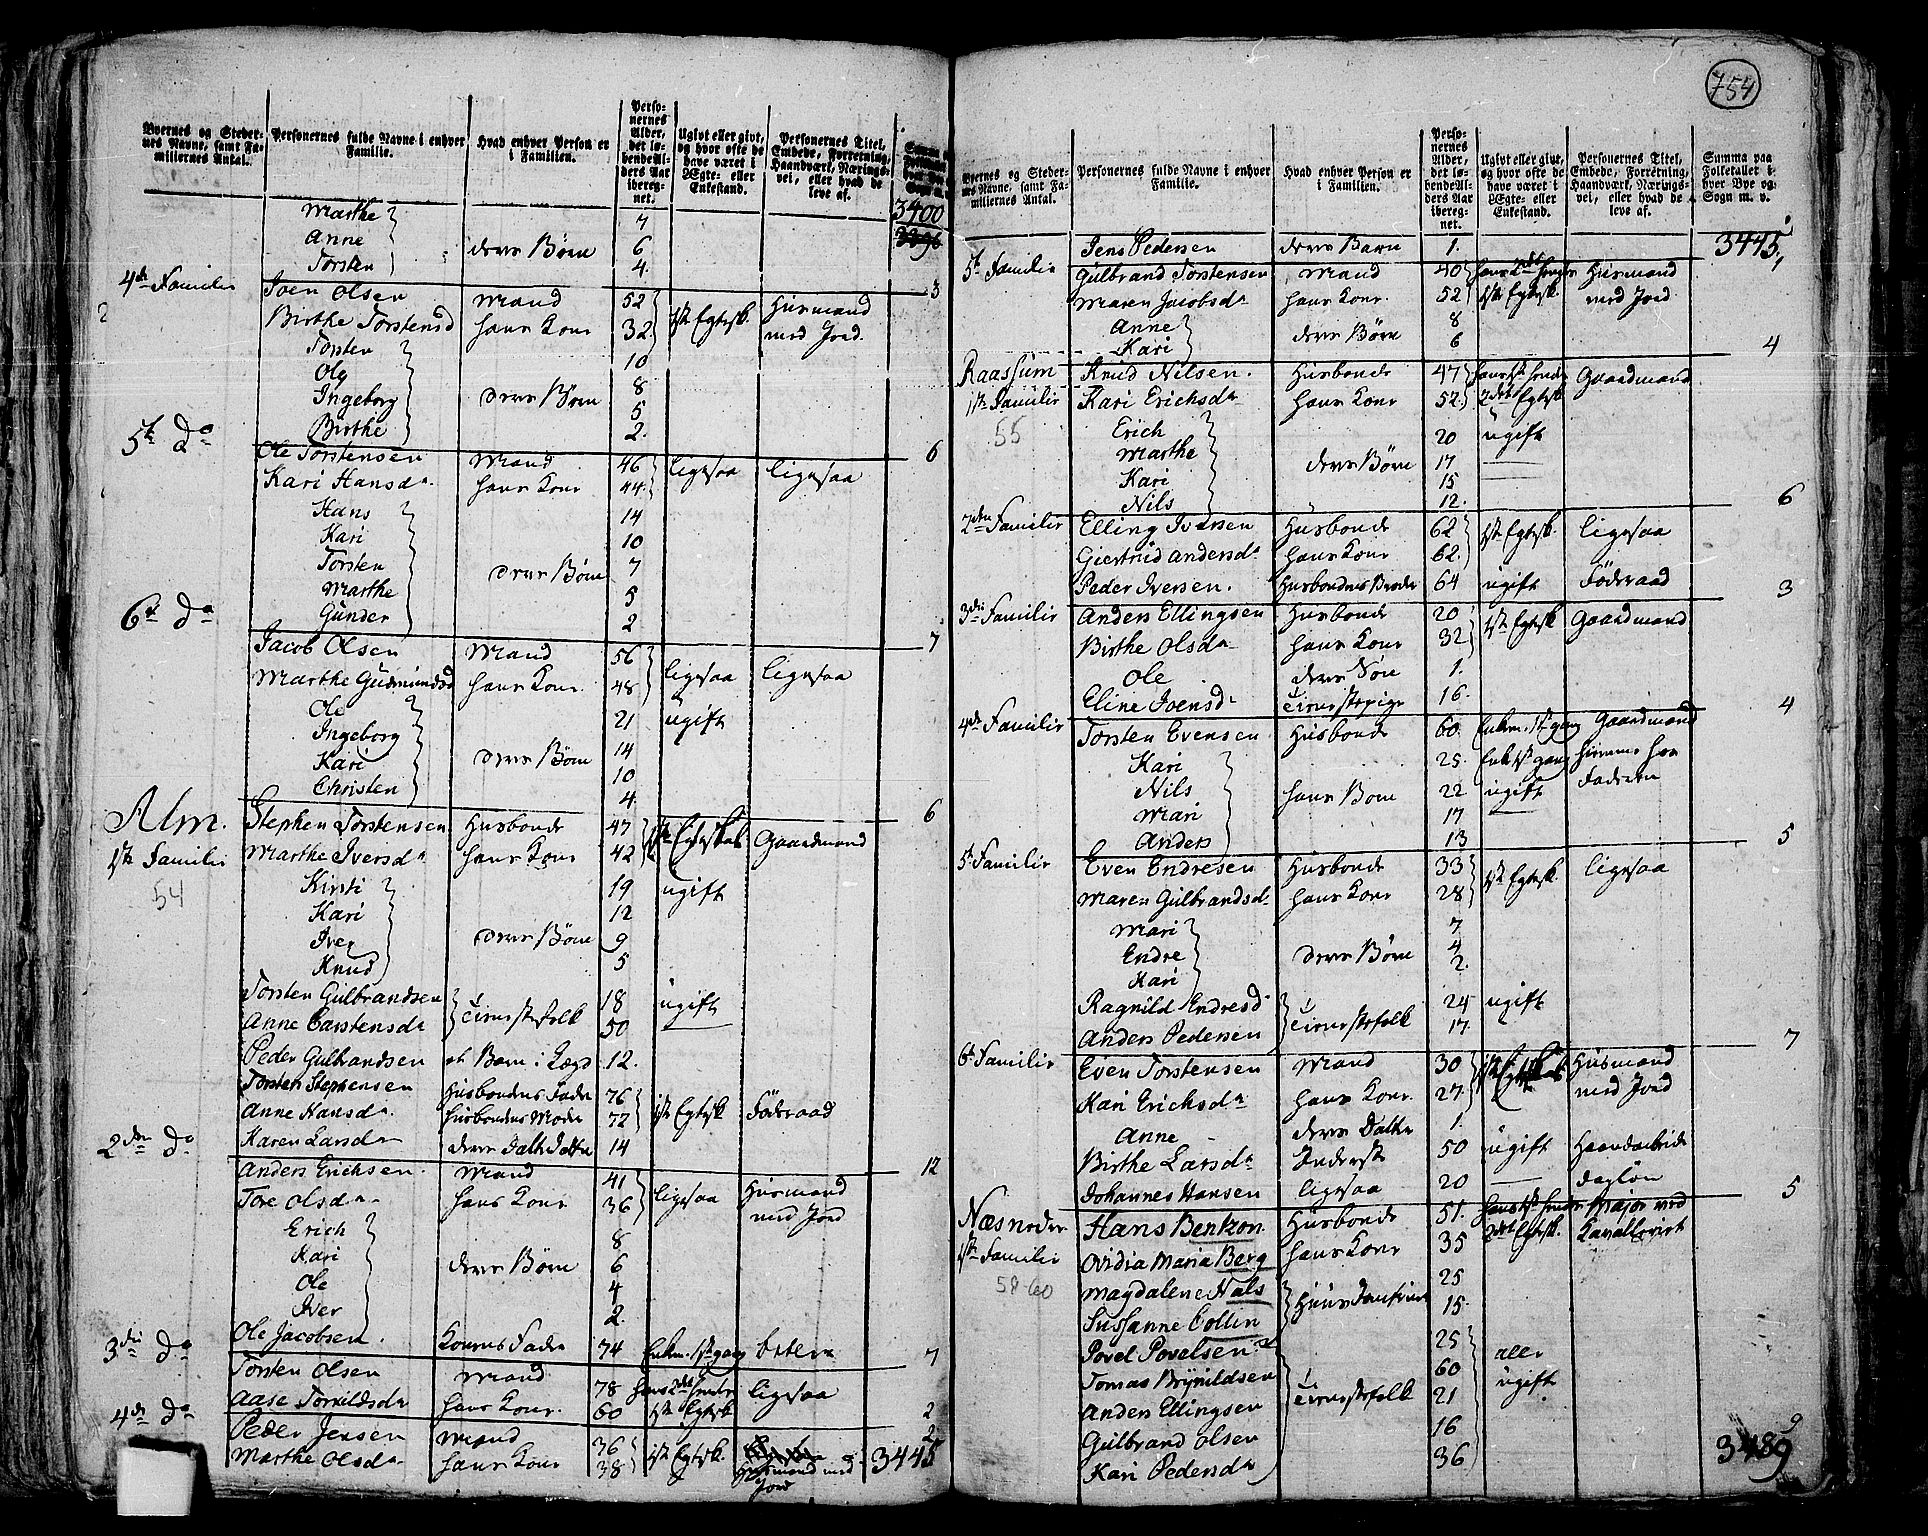 754
Byernes og Stedernes Navne, samt Familiernes Antal.
Personernes fulde Navne i enhver Familie.
Hvad enhver Person er i Familien.
Personernes Alder, det løbende Alders Aar iberegnet.
Ugivt eller givt, og hvor ofte de have været i Ægte- eller Enkestand.
Personernes Titel, Embede, Forretning, Haandværk, Næringsvei, eller hvad de leve af.
3400
Marthe 7
Anne deres Børn 6
Torsten 4.
4de Familie 3
Joen Olsen Mand 52 1ste Egtesk. Huusmand
Birthe Torstensd hans Kone 32 med Jord
Torsten 10
Ole 8
Ingeborg deres Børn 5
Birthe 2.
5te do 6
Ole Torstensen Mand 46 ligesaa ligesaa
Kari Hansda hans Kone 44
Hans 14
Kari 10
Torsten deres Børn 7
Marthe 5
Gunder 2
6te do 7
Jacob Olsen Mand 56 ligesaa ligesaa
Marthe Gudmundsd hans Kone 48
Ole 21 ugift
Ingeborg 14
Kari deres Børn 10
Christen 4
Alm. 6
Stephen Torstensen Husbonde 47 1ste Egteskab Gaardmand
1ste Familie Marthe Iversda hans Kone 42
54 Kirsti 19 ugift
Kari 12
Iver deres Børn 9
Knud 5
Torsten Gulbrandsen 18 ugift
Anne Carstensda tienestefolk 50
Peder Gulbrandsen et Barn i Lægd 12.
Torsten Stephensen Husbondens Fader 76 1ste Egtesk Föderaad
Anne Hansda. Husbondens Moder 72
Karen Larsda deres Datter Datter 14
2den do 12
Anders Erichsen. Mand 41 ligesaa Huusmand
Tore Olsda hans Kone 36 med Jord
Erich 8
Kari deres Børn 6
Ole 4
Iver 2.
Ole Jacobsen. Konens Fader 74 Enkem. 1ste gang betler
3die do 7
Torsten Olsen Mand 78 hans 2det ligesaa
Aase Torkildsda hans Kone. 60 1ste Egtesk
4de do 2
Peder Jensen Mand 36 1ste Egtesk. Huusmand med
Marthe Olsda hans Kone 38 Jord
2
3445
Byernes og Stedernes Navne, samt Familiernes Antal.
Personernes fulde Navne i enhver Familie.
Hvad enhver Person er i Familien.
Personernes Alder, det løbende Alders Aar iberegnet.
Ugivt eller givt, og hvor ofte de have været i Ægte- eller Enkestand.
Personernes Titel, Embede, Forretning, Haandværk, Næringsvei, eller hvad de leve af.
Summa paa Folketallet i hver Bye og Sogn m. v.
Jens Pedersen deres Barn 1. 3445
5te Familie Gulbrand Torstensen Mand 40 hans 2det Huusmand
Maren Jacobsda hans Kone. 52 1ste Egtesk. med Jord
Anne 8
Kari deres Børn 6
4
Raassum Knud Nilsen. Husbonde 47 hans 1ste Gaardmand
1ste Familie Kari Erichsda hans Kone 52 2det Egtesk
55 Erich 20 ugift
Marthe deres Børn 17
Kari 15
Nils 12.
6
2den Familie Elling Iversen Husbonde 62 1ste Egtesk. ligesaa
Giertrud Andersda hans Kone 62.
Peder Iversen. Husbondens Broder 64 ugift Föderaad
3
3die Familie Anders Ellingsen Husbonde 20 1ste Egtesk Gaardmand
Birthe Olsda hans Kone 32
Ole deres Søn 1.
Eline Joensda tienestepige 16.
4
4de Familie Torsten Evensen Husbonde 60. Enkem. 1ste gang Gaardmand
Kari 25. Enke 1ste gang hiemme hos
Nils hans Børn 22 ugift Faderen
Mari 17
Anders 13
5
5te Familie Even Endresen Husbonde 33 1ste Egtesk. ligesaa
Maren Gulbrandsda hans Kone 28
Mari 7
Endre deres Børn 4
Kari 2.
Ragnild Endresd 24 ugift
Anders Pedersen tienestefolk 17.
7
6te Familie Even Torstensen Mand 30 1ste Egteskab Huusmand
Kari Erichsda hans Kone. 27 med Jord
Anne deres Datter 1.
Birthe Larsda Inderste 50 ugift Haandarbeide
Johannes Hansen ligesaa 20 daglön
5
Næs nedre Hans Benkon Husbonde 51. hans 1ste Major ved
1ste Familie Ovidia Maria Berg hans Kone 35 2det Egtesk. Kavalleriet
58-60 Magdalene Hals 25
Sussanne Collin 15.
Povel Povelsen 25 alle
Tomas Brynildsen 60 ugift
Anders Ellingsen tienestefolk 21
Gulbrand Olsen 16
Kari Pedersda 36
9
3489